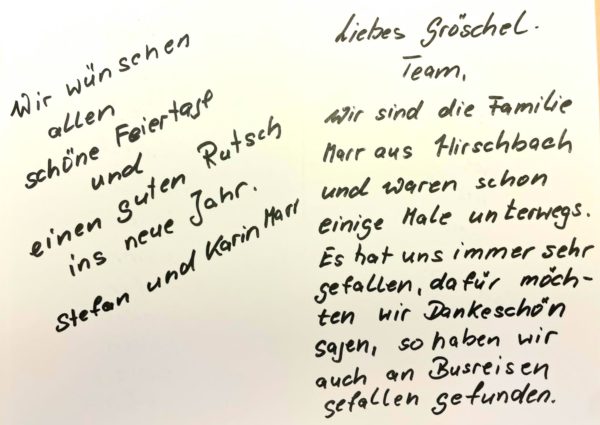 Liebes Gröschel.
Team,
wir sind die Familie
Marr aus Hirschbach
und waren schon
einige Male unterwegs.
Es hat uns immer sehr
gefallen, dafür möch-
ten wir Dankeschön
sagen, so haben wir
auch an Busreisen
gefallen gefunden.
Wir wünschen
allen
schöne Feiertage
und
einen guten Rutsch
ins neue Jahr.
Stefan und Karin Marr